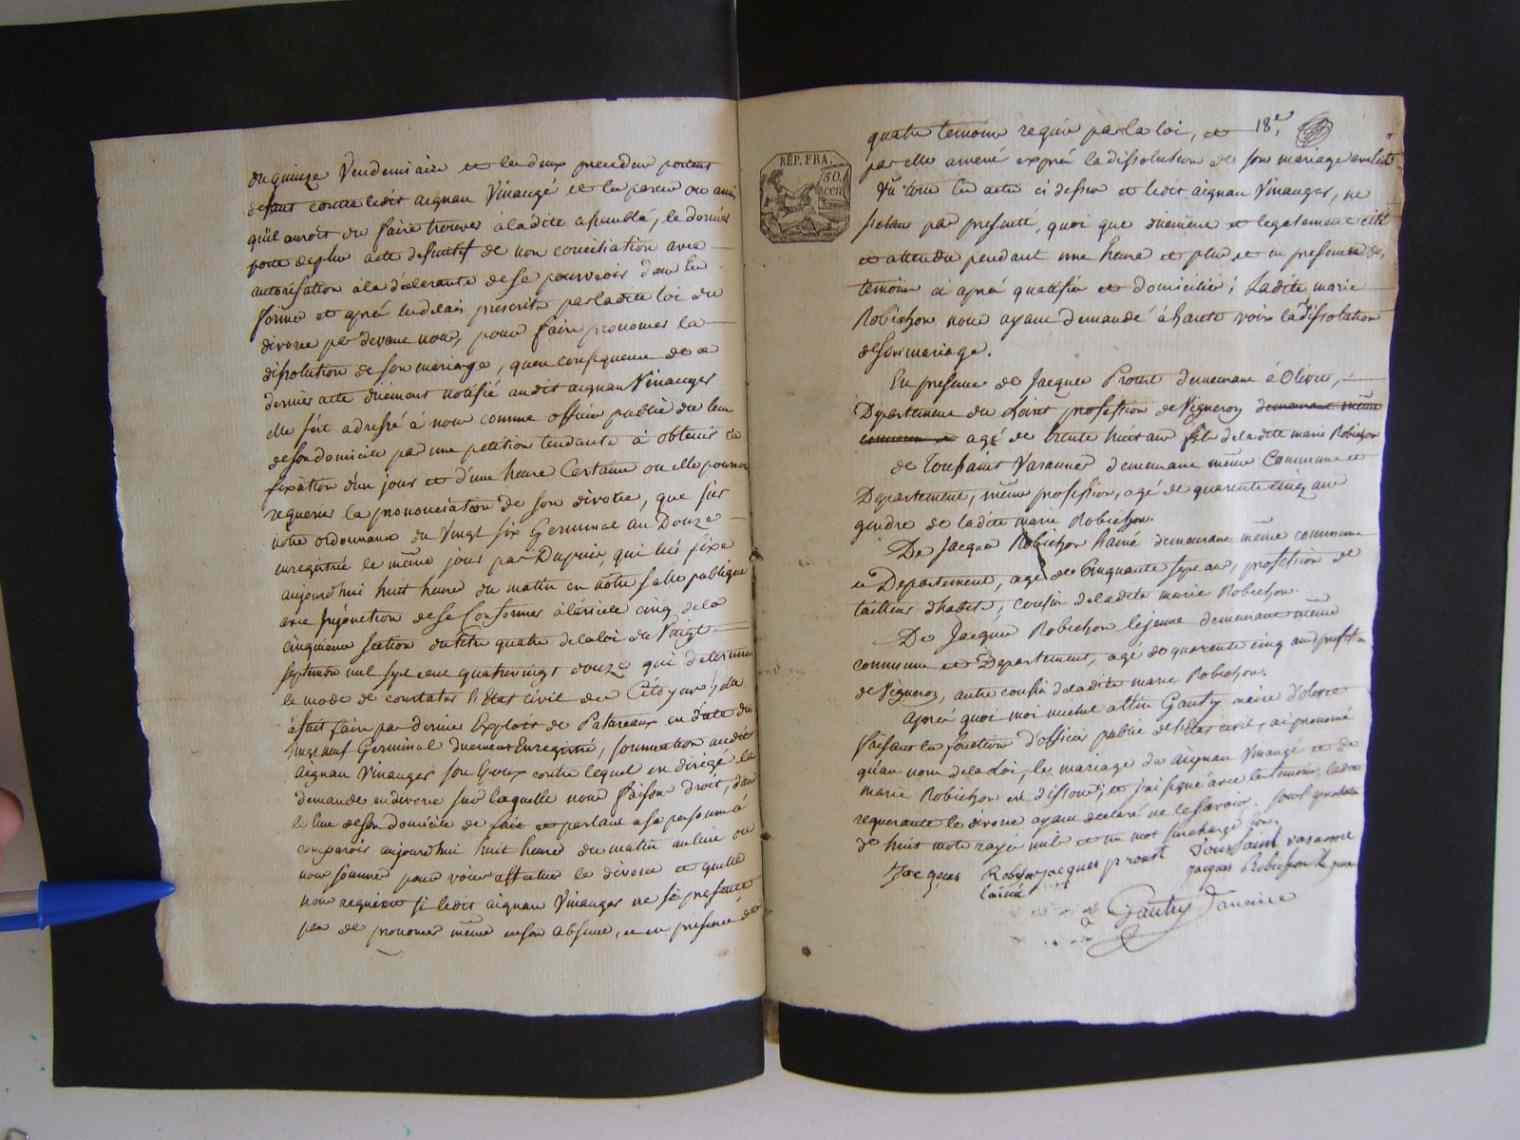 du quinze Vendemiaire et les deux premiers portent
defaut contre ledit aignan Vinauger et les parens ou amis
qu'il auroit du faire trouver à ladite assemblé, le dernier
porte de plus acte definitif de non conciliation avec
autorisation à la déclarante de se pourvoir dans les
formes et après les delais prescrits par ladite loi du
divorce par devant nous, pour faire prononcer la
dissolution de son mariage, qu'en consequence de ce
dernier acte duement notifié audit aignan Vinauger
elle s'est adressé à nous comme officier public du lieu
de son domicile par une petition tendante à obtenir la
fixation d'un jour et d'une heure Certaine ou elle pourra
requerir la prononciation de son divorce, que sur
notre ordonnance du Vingt six Germinal an Douze
enregistré le même jour par Dupuis, qui lui fixe
aujourd'hui huit heures du matin en nôtre salle publique
avec injonction de se Conformer à l'article cinq de la
cinquieme section du titre quatre de la loi du Vingt
septembre mil sept cent quatrevingt douze qui determine
le mode de constater l'Etat civil des Citoyens, elle
a fait faire par dernier Exploit de Patureaux en date du
Vingt neuf Germinal duement Enregistré, sommation audit
Aignan Vinauger son Epoux contre lequel est dirigé la
demande en divorce sur laquelle nous faisons droit, dans
le lieu de son domicile de fait et parlant a sa personne à
comparoir aujourd'hui huit heures du matin au lieu ou
nous sommes pour voir le divorce et quelle
nous requiert si ledit aignan Vinauger ne se presente
pas de prononcer même en son absence, et en presence de
18e
RÉP. FRA.
50.
CEN.
quatre temoins requis par la loi, et
par elle amené exprès la dissolution de son mariage avec ledit
Vû tous les actes ci dessus et ledit aignan Vinauger, ne
s'étant pas presenté, quoi que duement et legalement cité
et attendu pendant une heure et plus et en presence des
temoins ci après qualifiés et domiciliés; Ladite marie
Robichon nous ayant demandé à haute voix la dissolution
de son mariage.
En presence de Jacques Proust demeurant à Olivet,
Département du Loiret profession de Vigneron demeurant même
commune agé de trente huit ans fils de ladite marie Robichon
de Toussaint Vasannes demeurant même Commune et
Departement, même profession, agé de quarente cinq ans
gendre de ladite marie Robichon.
De Jacques Robichon l'ainé demeurant même commune
et Departement, agé de Cinquante sept ans, profession de
tailleur d'habits, cousin de ladite marie Robichon.
De Jacques Robichon le jeune demeurant même
commune et Departement, agé de quarente cinq ans profession
de Vigneron, autre cousin de ladite marie Robichon.
Après quoi moi michel Gautry maire d'olivet
faisant les fonctions d'officier public de l'Etat civil, ai prononcé
qu'au nom de la Loi, le mariage du aignan Vinauger et de
marie Robichon est dissous; et j'ai signé avec les temoins, ladite
requerante le divorce ayant declaré ne le savoir.
de huit mots rayés nuls et un mot surchargé bon.
Jacques Robichon jacques proust Toussaint vasanne
l'ainé jacques Robichon le jeune
Gautry maire